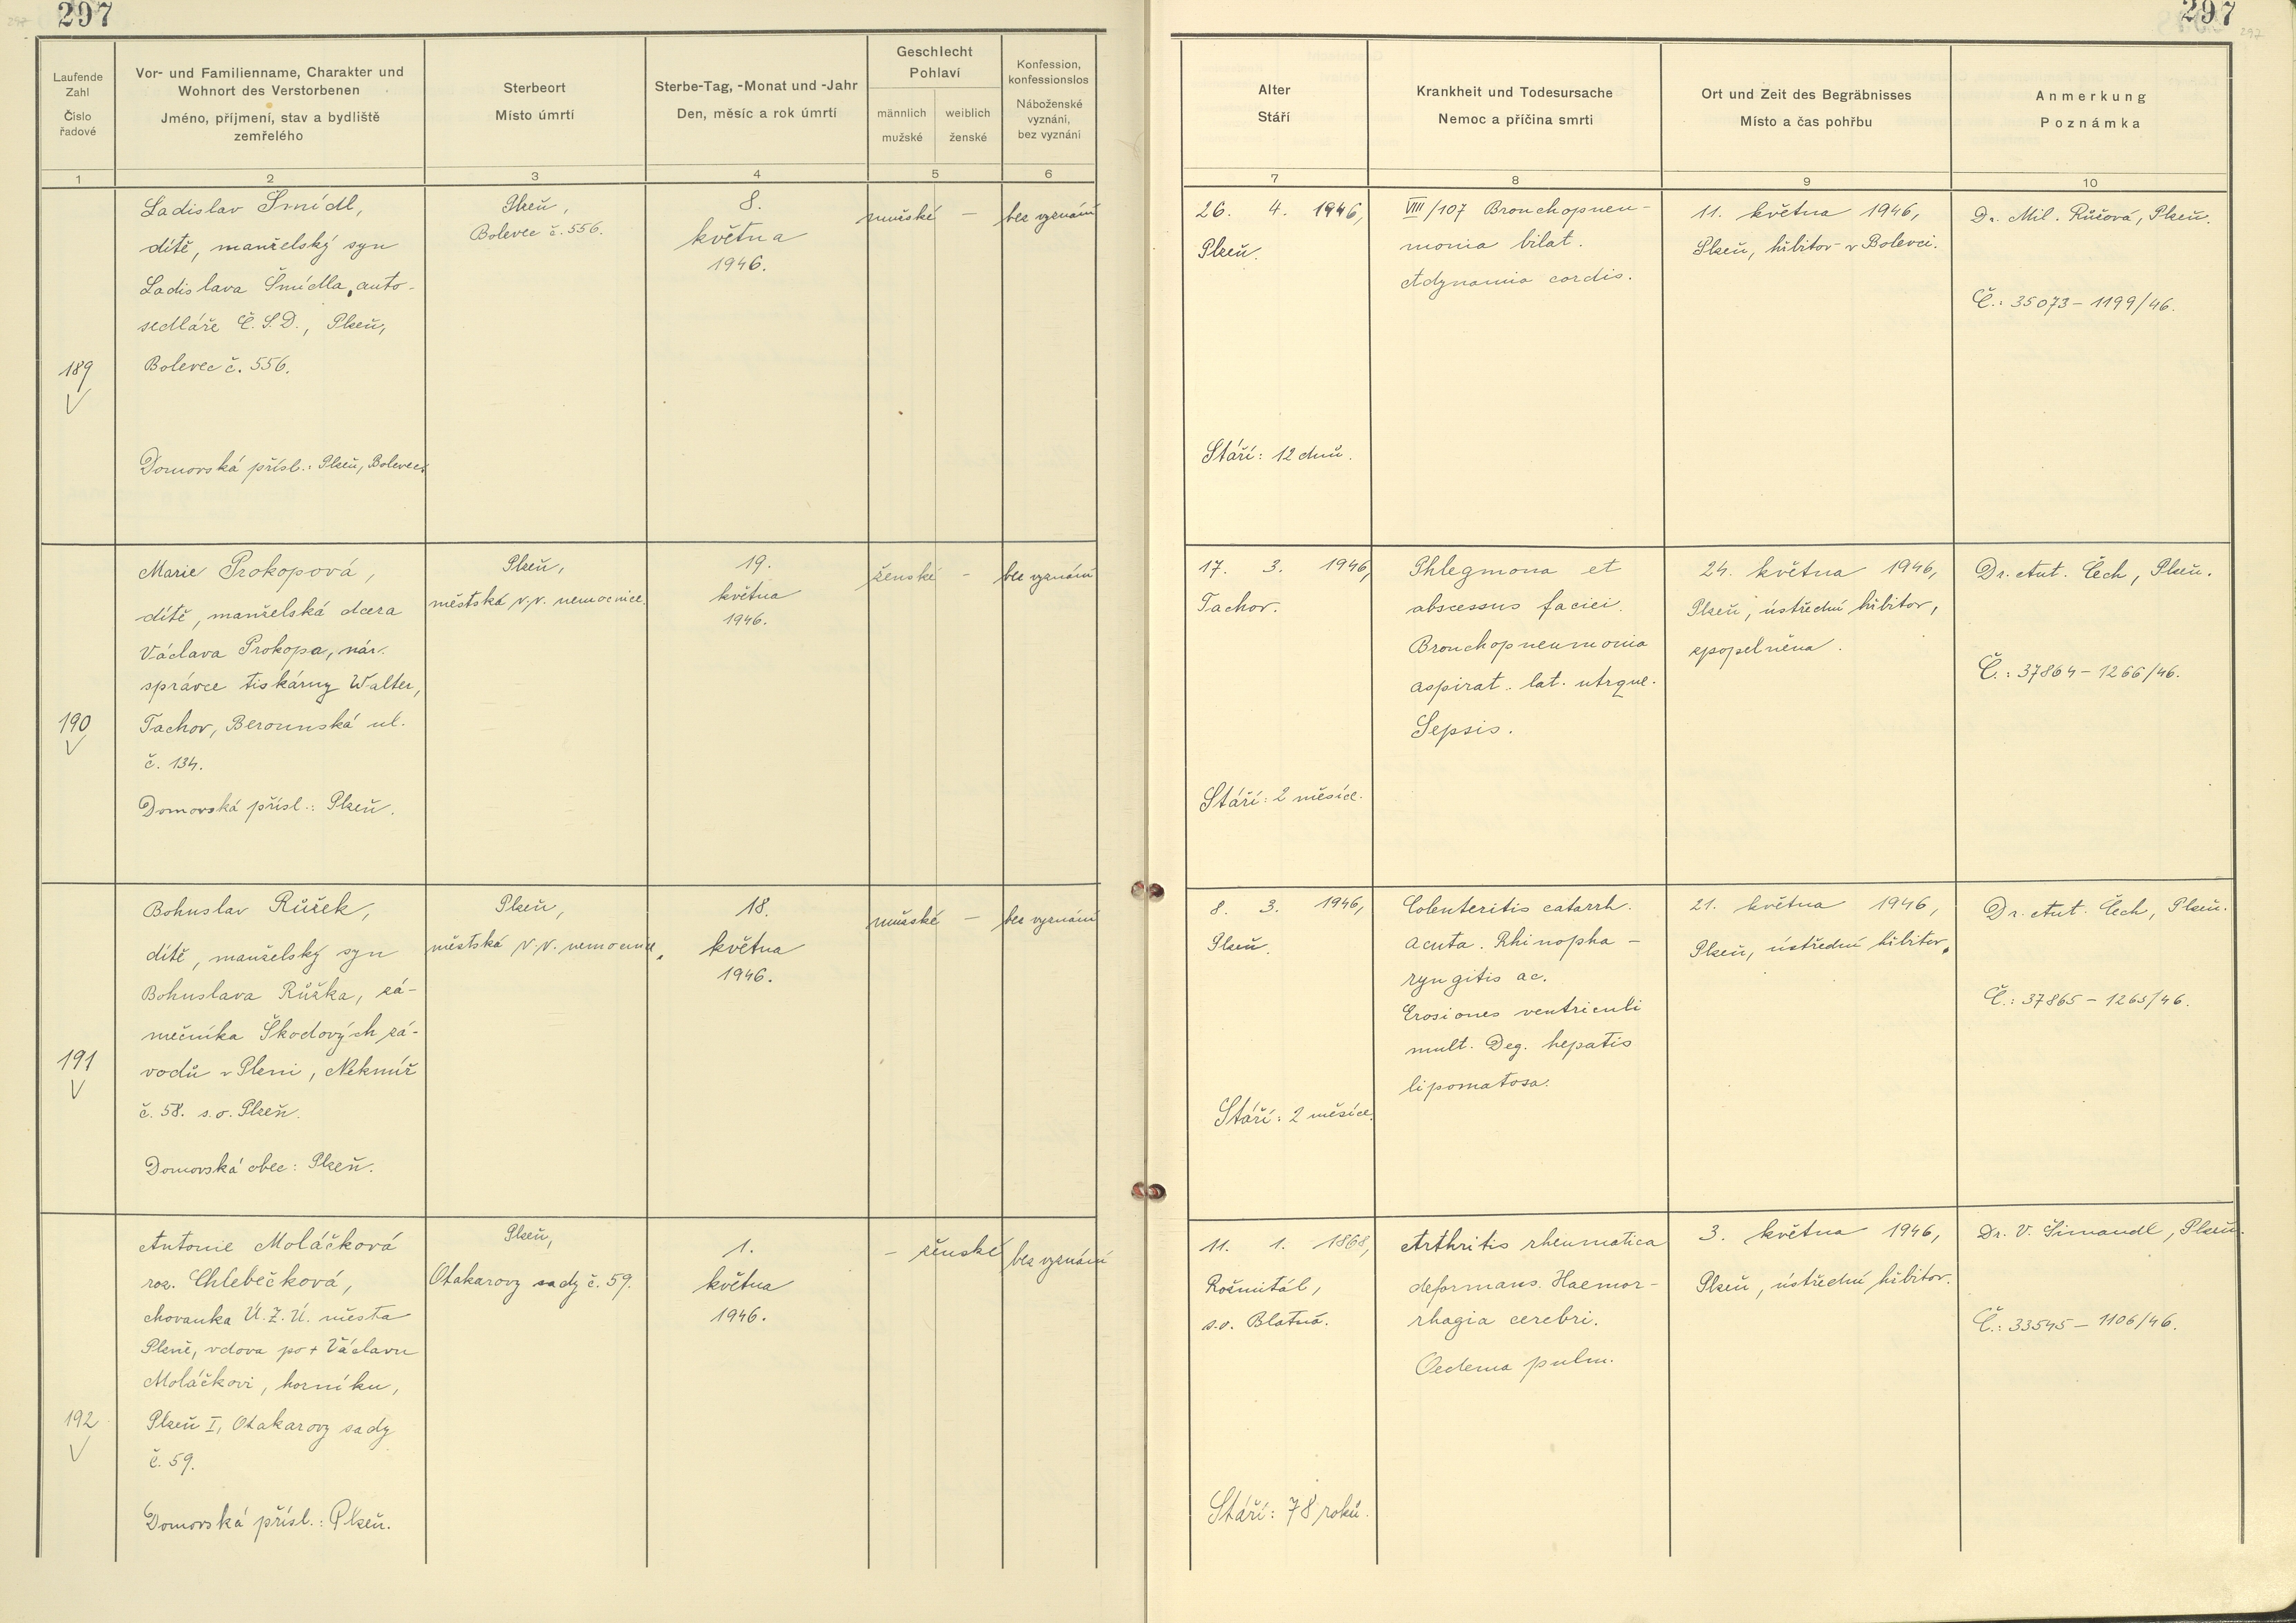 297
297
Laufende
Zahl
Číslo
řadové
Vor- und Familienname, Charakter und
Wohnort des Verstorbenen
Jméno, příjmení, stav a bydliště
zemřelého
Sterbeort
Místo úmrtí
Sterbe-Tag, -Monat und -Jahr
Den, měsíc a rok úmrtí
Geschlecht
Pohlaví
männlich
mužské
weiblich
ženské
Konfession,
konfessionslos
Náboženské
vyznání,
bez vyznání
Alter
Stáří
Krankheit und Todesursache
Nemoc a příčina smrti
Ort und Zeit des Begräbnisses
Místo a čas pohřbu
Anmerkung
Poznámka
1 2 3 4 5 6 7 8 9 10
189
Ladislav Šmídl,
dítě, manželský syn
Ladislava Šmídla, auto-
sedláře Č.S.D., Plzeň,
Bolevec č. 556.
Domovská přísl.: Plzeň, Bolevec.
Plzeň,
Bolevec č. 556.
8.
května
1946.
mužské —
bez vyznání
26. 4. 1946,
Plzeň.
Stáří: 12 dnů.
VIII/107 Bronchopneu-
monia bilat.
Adynamia cordis.
11. května 1946,
Plzeň, hřbitov v Bolevci.
Dr. Mil. Růžová, Plzeň.
Č.: 35073 – 1199/46.
190
Marie Prokopová,
dítě, manželská dcera
Václava Prokopa, nár.
správce tiskárny Walter,
Tachov, Berounská ul.
č. 134.
Domovská přísl.: Plzeň.
Plzeň,
městská v.v. nemocnice.
19.
května
1946.
ženské –
bez vyznání
17. 3. 1946,
Tachov.
Stáří: 2 měsíce.
Phlegmona et
abscessus faciei.
Bronchopneumonia
aspirat. lat. utrque.
Sepsis.
24. května 1946,
Plzeň, ústřední hřbitov,
zpopelněna.
Dr. Ant. Čech, Plzeň.
Č.: 37864 – 1266/46.
191
Bohuslav Růžek,
dítě, manželský syn
Bohuslava Růžka, zá-
mečníka Škodových zá-
vodů v Plzni, Nekmíř
č. 58. s.o. Plzeň.
Domovská obec: Plzeň.
Plzeň,
městská v.v. nemocnice.
18.
května
1946.
mužské –
bez vyznání
8. 3. 1946,
Plzeň.
Stáří: 2 měsíce.
Colenteritis catarrh.
acuta. Rhinopha-
ryngitis ac.
Erosiones ventriculi
mult. Deg. hepatis
lipomatosa.
21. května 1946,
Plzeň, ústřední hřbitov.
Dr. Ant. Čech, Plzeň.
Č.: 37865 – 1265/46.
192
Antonie Moláčková
roz. Chlebečková,
chovanka Ú.Z.Ú. města
Plzně, vdova po + Václavu
Moláčkovi, horníku,
Plzeň I, Otakarovy sady
č. 59.
Domovská přísl.: Plzeň.
Plzeň,
Otakarovy sady č. 59.
1.
května
1946.
– ženské
bez vyznání
11. 1. 1868,
Rožmitál,
s.o. Blatná.
Stáří: 78 roků.
Arthritis rheumatica
deformans. Haemor-
rhagia cerebri.
Oedema pulm.
3. května 1946,
Plzeň, ústřední hřbitov.
Dr. V. Simandl, Plzeň.
Č.: 33545 – 1106/46.